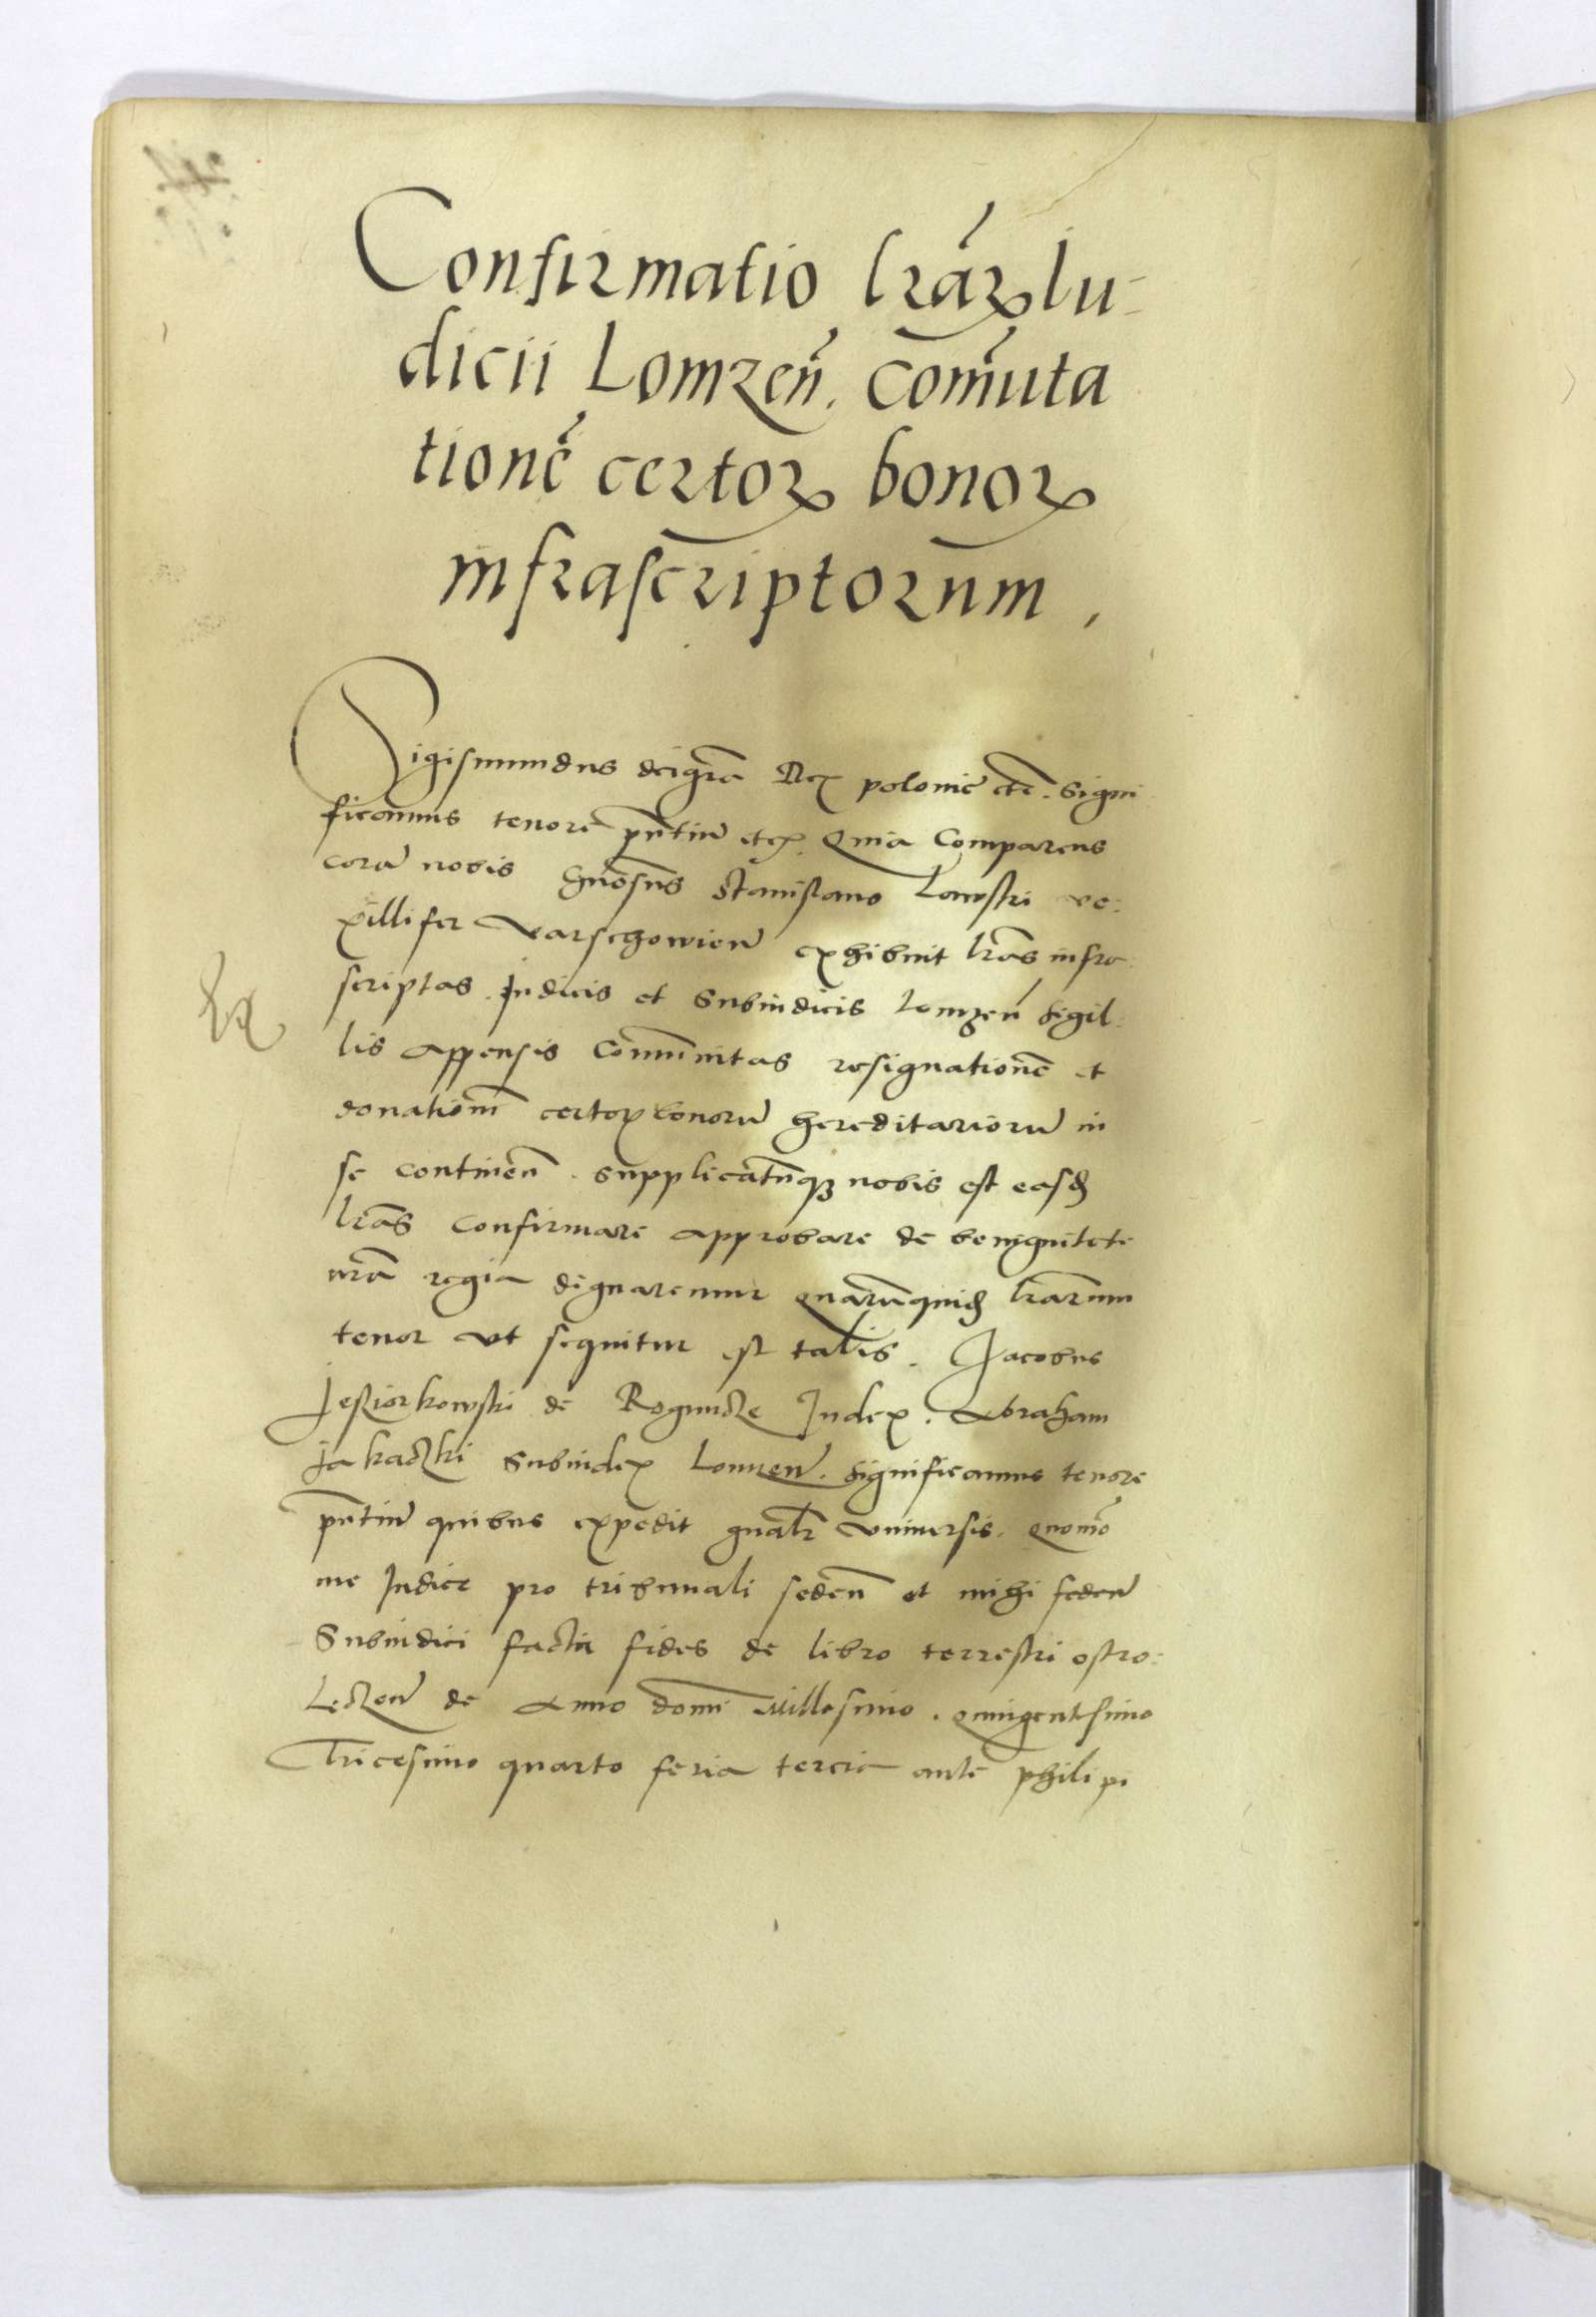 Confirmatio lrãꝝ Iu-
dicii Lomzeñ. Com̃uta
tionẽ certoꝝ bonoꝝ
infrascriptorum,
Sigismundus dei grã Rex polonie etc. Signi
ficamus tenore pñtiũ etc. Quia Comparens
corã nobis Gñosus Stanislaus Lawski ve:
xillifer Varschowieñ exhibuit lrãs infra
scriptas Judicis et Subiudicis Lomzeñ Sigil:
lis appensis Com̃unitas resignationẽ et
donationẽ certoꝝ bonorũ hereditariorũ in
se contineñ. Supplicatũqꝫ nobis est easđ
lrãs Confirmare approbare de benignitate
nrã regia dignaremur quarũquiđ lrãrum
tenor ut sequitur est talis. Jacobus
Jeziorkowski de Rogunicze Judex. Abraham
Jakaczki Subiudex Lomzeñ. Significamus tenore
pñtiũ quibus expedit gñalr Vniversis. Quomõ
me Judice pro tribunali sedeñ et mihi sedeñ
Subiudici facta fides de libro terrestri ostro:
leczeñ de Anno domi Millesimo. quingentesimo
Tricesimo quarto feria tercia ante philipi